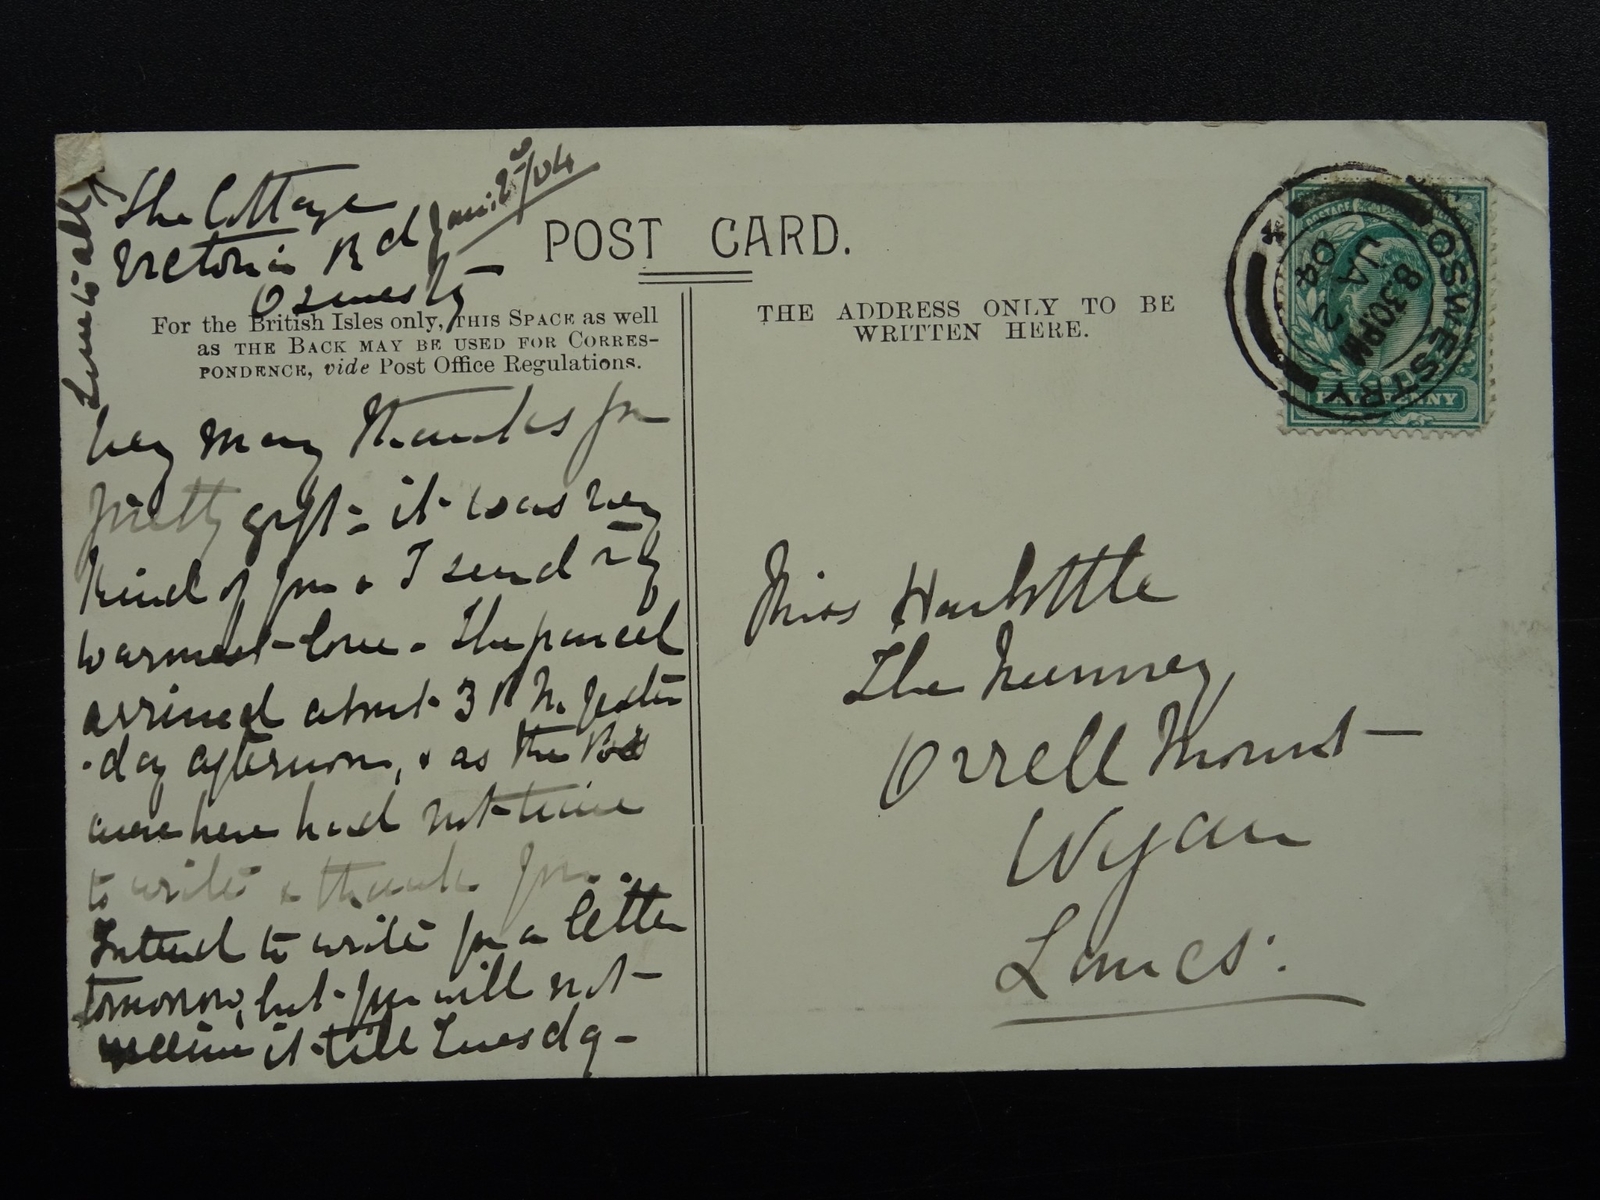 The Cottage
Victoria Rd Jan: 2nd/04
Oswestry
POST CARD.
For the British Isles only, THIS SPACE as well
as THE BACK MAY BE USED FOR CORRES-
PONDENCE, vide Post Office Regulations.
THE ADDRESS ONLY TO BE
WRITTEN HERE.
Love to all
Very many thanks for
pretty gift - it was very
kind of you & I send my
warmest love. The parcel
arrived about 3 P.M. yester
-day afternoon, & as the
were here had not time
to write & thank you.
Intend to write you a letter
tomorrow, but you will not
receive it till Tuesday -
Miss Harbottle
The Nunnery
Orrell Mount
Wigan
Lancs:
OSWESTRY
8.30PM
JA 2
04
POSTAGE
HALFPENNY